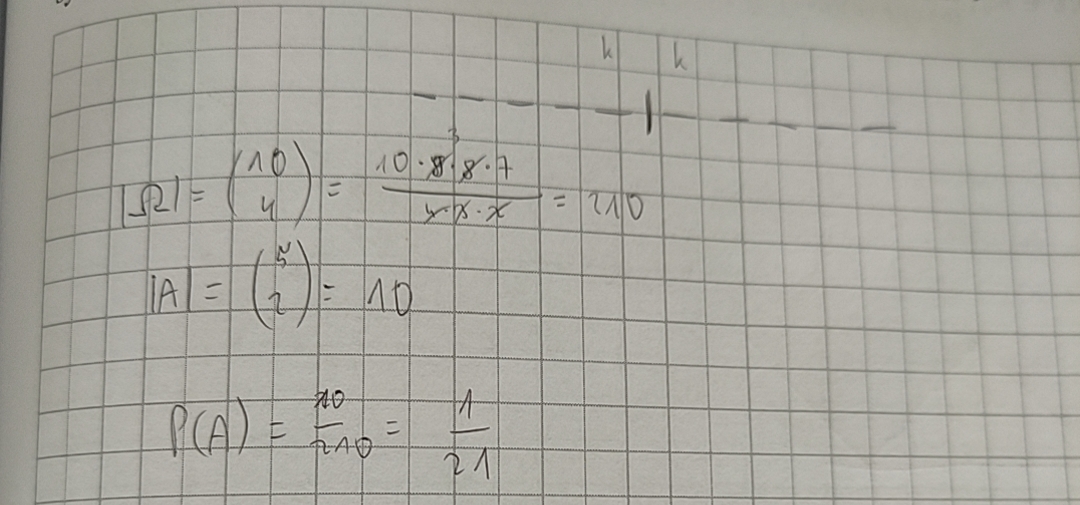 k k
|Ω| = (10 4) = 10·9·8·7 / 4·3·2 = 210
3
|A| = (5 2) = 10
P(A) = 10/210 = 1/21